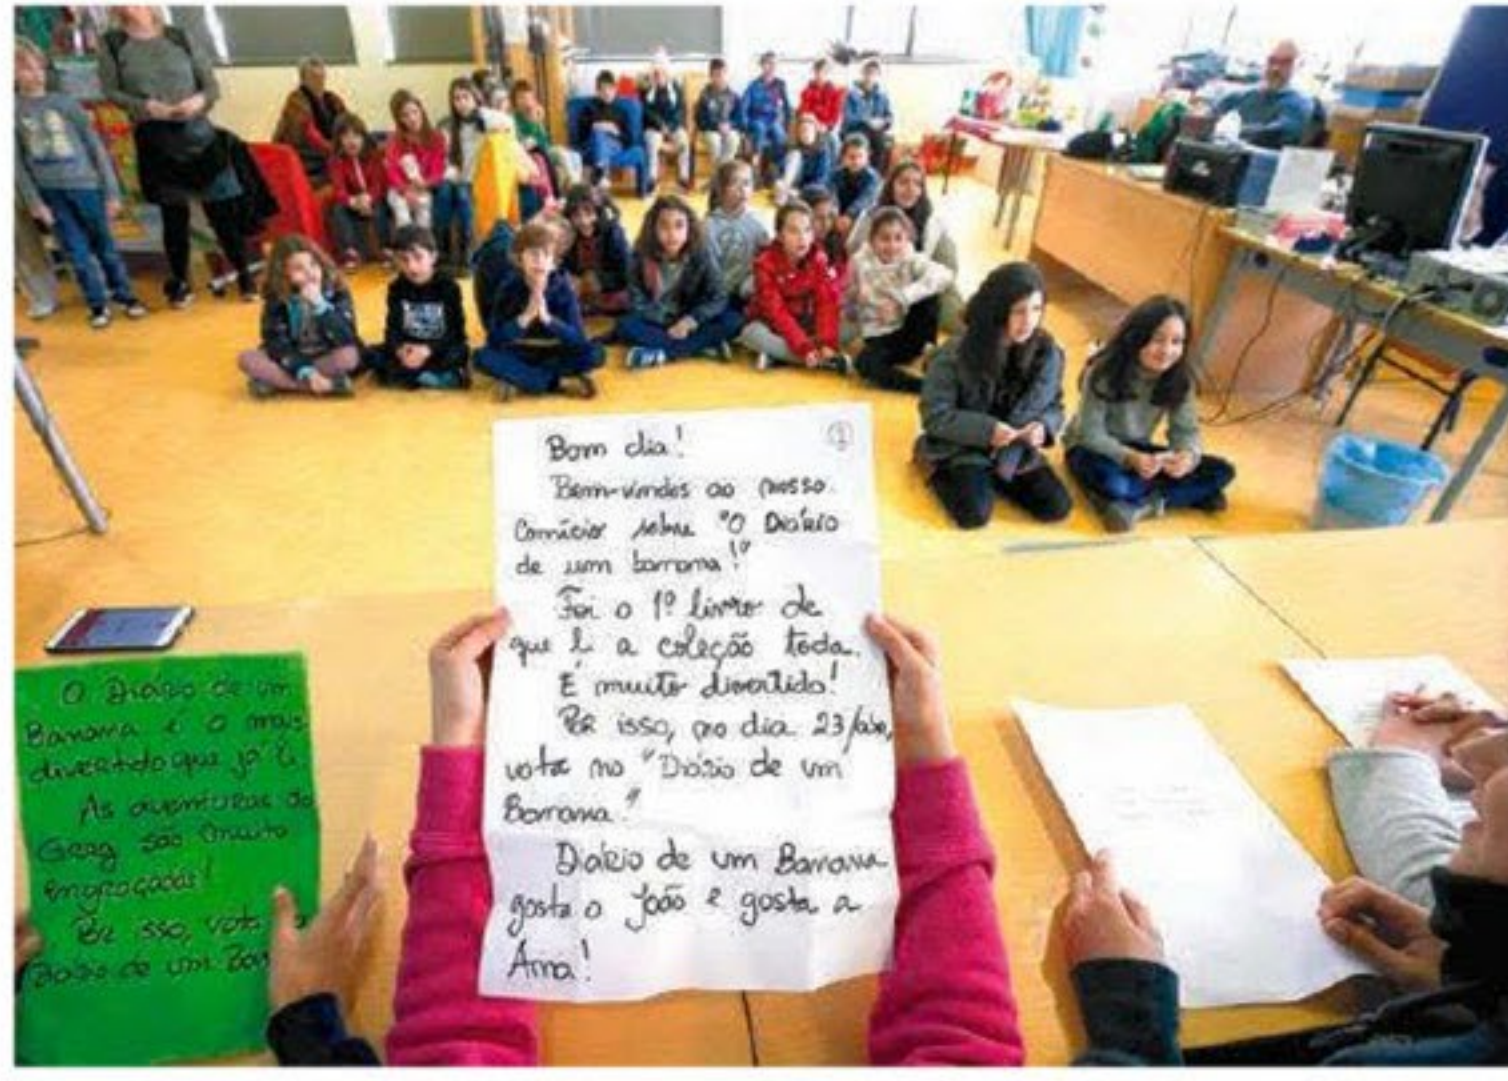 Bom dia!
①
Bem-vindos ao nosso
Comício sobre "O Diário
de um banana!"
Foi o 1º livro de
que li a coleção toda.
É muito divertido!
Por isso, no dia 23/abr,
vota no "Diário de um
Banana."
Diário de um Banana
gosta o João e gosta a
Ana!
O Diário de um
Banana é o mais
divertido que já li.
As aventuras do
Greg são muito
engraçadas!
Por isso, vota
Diário de um Ban